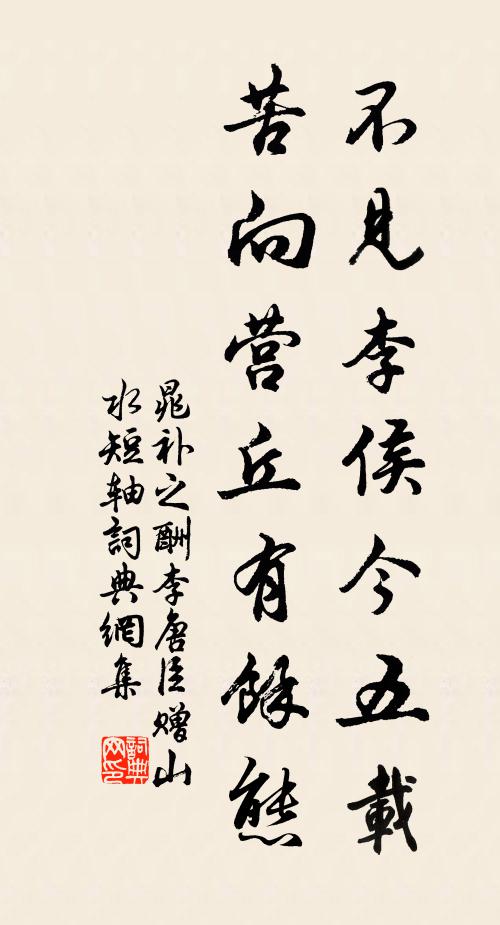 不見李侯今五載
苦向营丘有餘態
晁补之酬李唐臣赠山
水短轴詞典網集
詞典
网印